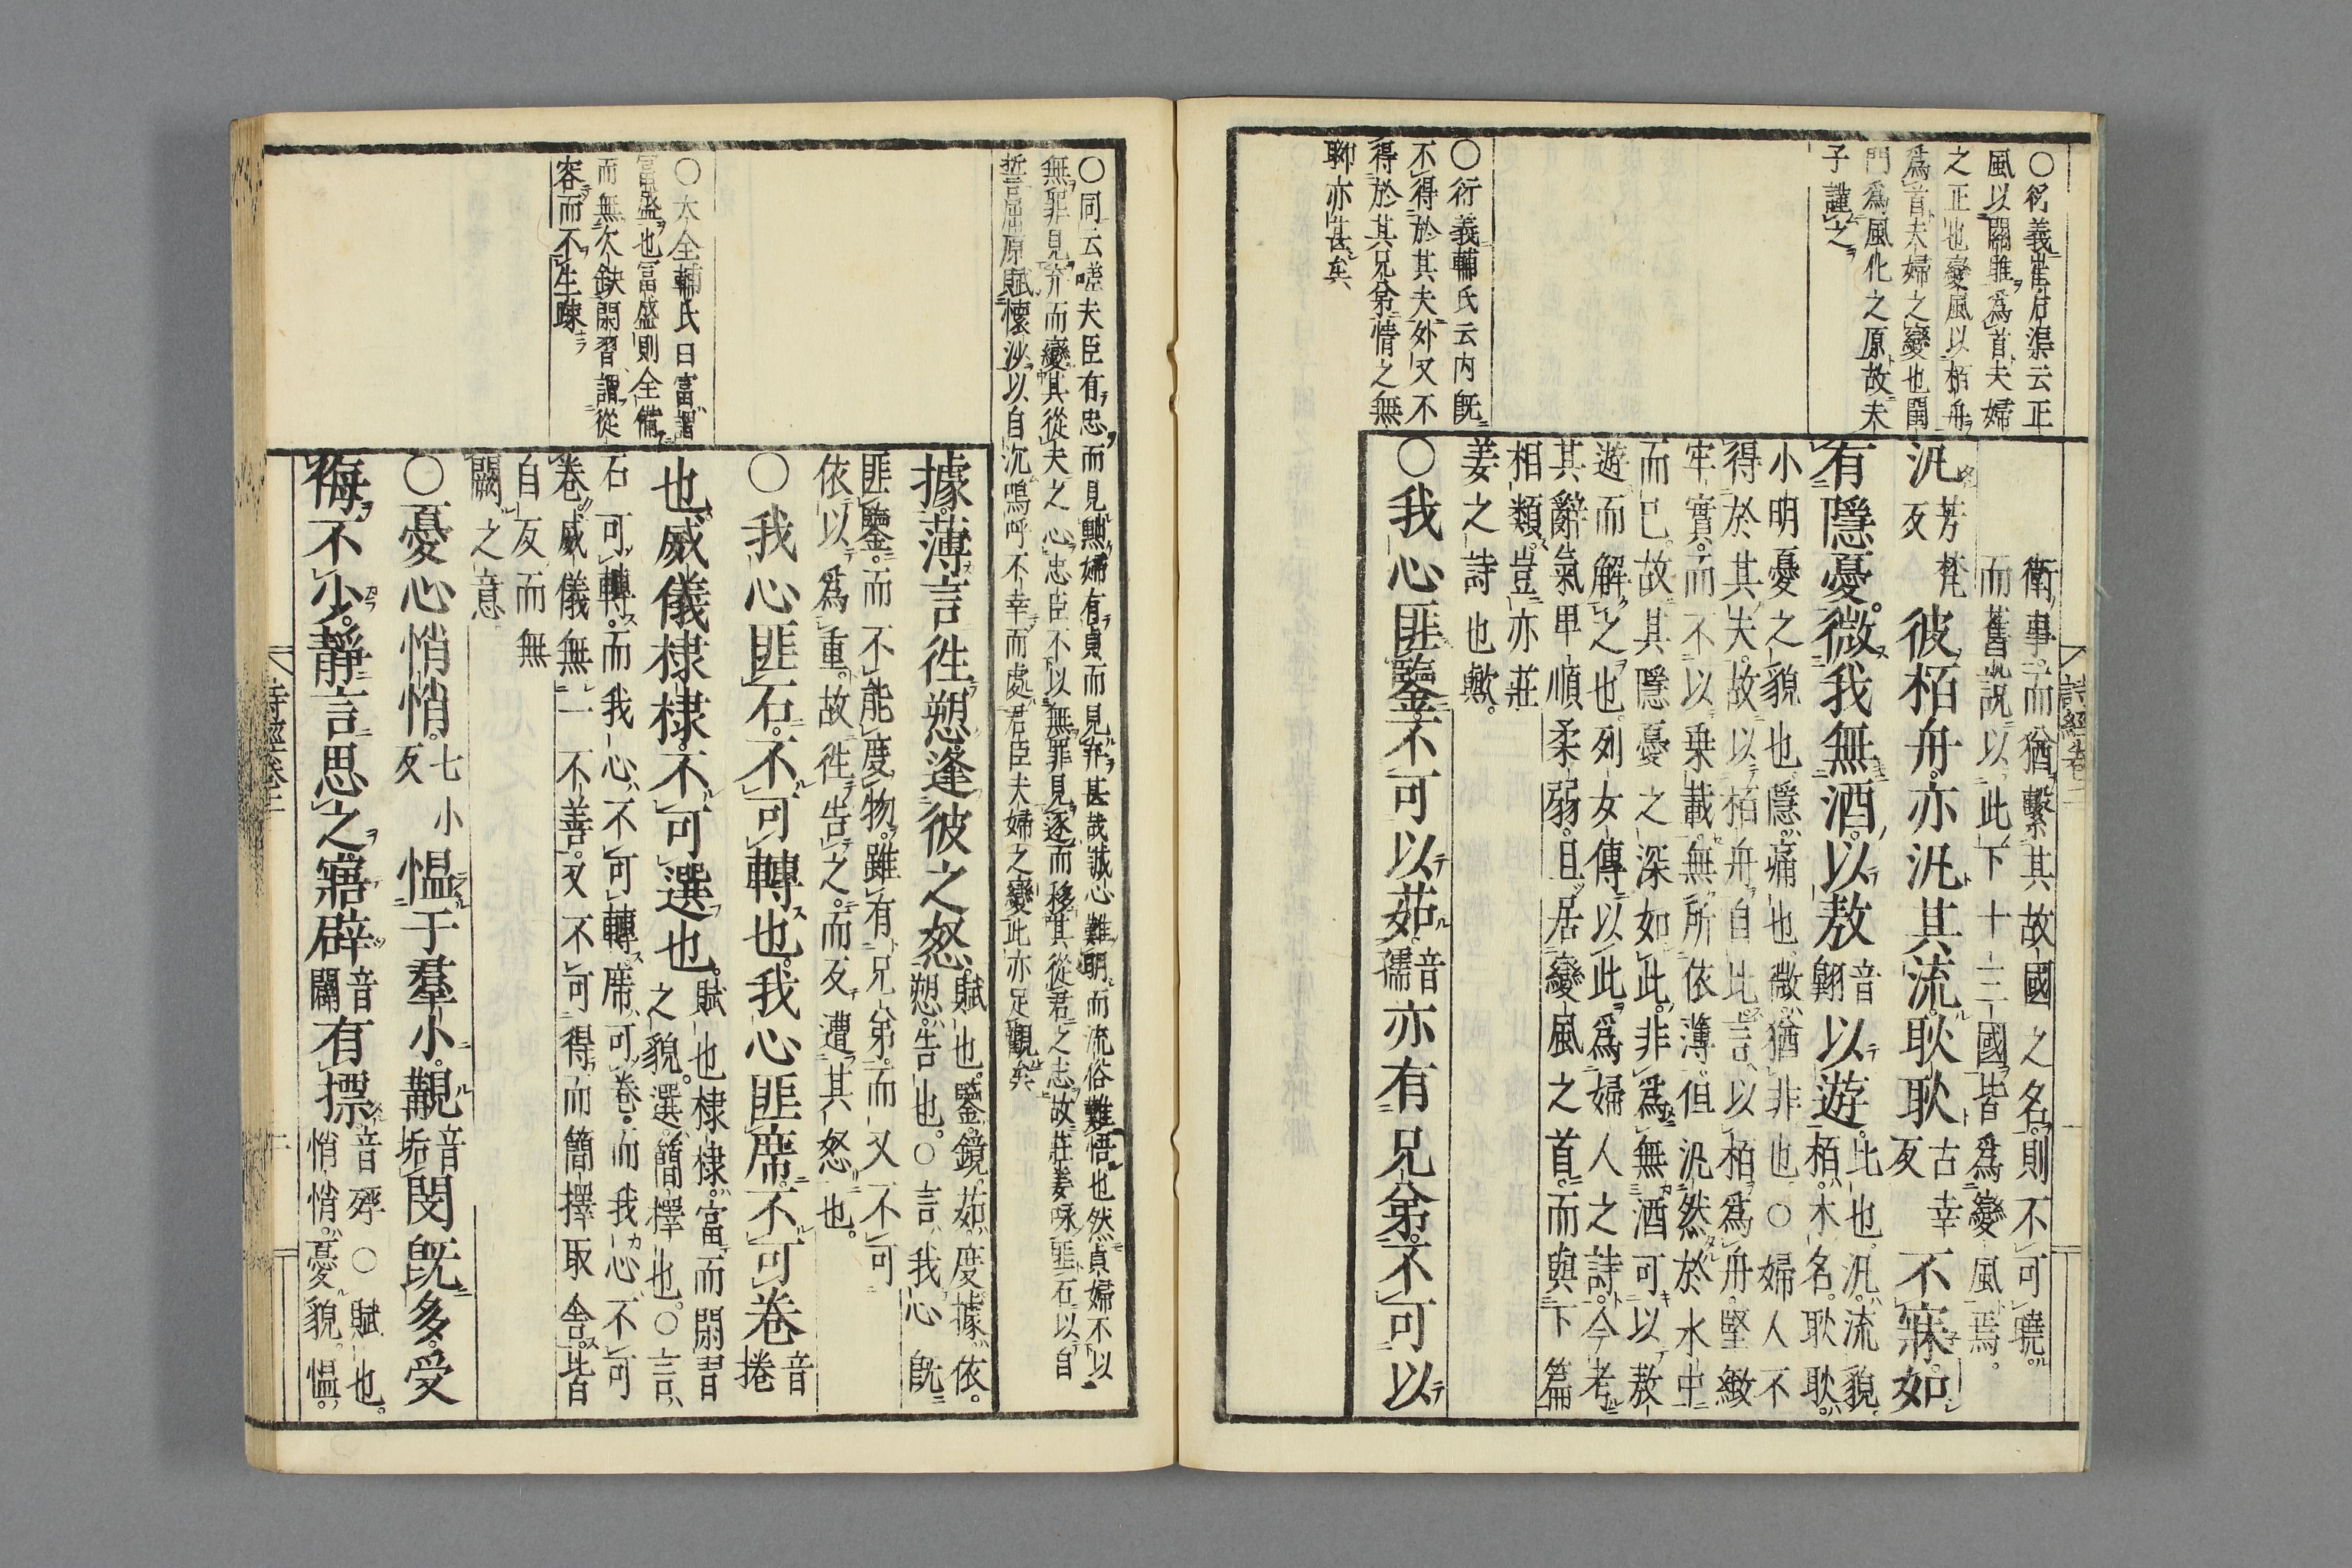 ○衍義崔后渠云正
風以關雎爲首夫婦
之正也變風以栢舟
爲首夫婦之變也閨
門爲風化之原故夫
子謹之
○衍義輔氏云内既
不得於其夫外又不
得於其兄弟情之無
聊亦甚矣
詩經卷二
衞事而猶繫其故國之名則不可曉
而舊説以此下十三國皆爲變風焉
汎芳梵反彼栢舟亦汎其流耿耿古幸反不寐如
有隱憂微我無酒以敖音翺以遊比也汎流貌
栢木名耿耿
小明憂之貌也隱痛也微猶非也○婦人不
得於其夫故以栢舟自比言以栢爲舟堅緻
牢實而不以乗載無所依薄但汎然於水中
而已故其隱憂之深如此非爲無酒可以敖
遊而解之也列女傳以此爲婦人之詩今考
其辭氣卑順柔弱且居變風之首而與下篇
相類豈亦莊
姜之詩也歟
○我心匪鑒不可以茹音孺亦有兄弟不可以
○同云嗟夫臣有忠而見黜婦有貞而見弃甚哉誠心難明而流俗難悟也然貞婦不以
無罪見弃而變其從夫之心忠臣不以無罪見逐而移其從君之志故莊姜咏匪石以自
誓屈原賦懷沙以自沉嗚呼不幸而處君臣夫婦之變此亦足觀矣
○大全輔氏曰富謂
富盛也富盛則全備
而無欠缺閑習謂從
容而不生踈
據薄言徃愬逢彼之怒賦也鑒鏡茹度據依
愬告也○言我心既
匪鑒而不能度物雖有兄弟而又不可
依以爲重故徃告之而反遭其怒也
○我心匪石不可轉也我心匪席不可卷音捲
也威儀棣棣不可選也賦也棣棣富而閑習
之貌選簡擇也○言
石可轉而我心不可轉席可卷而我心不可
卷威儀無一不善又不可得而簡擇取舍皆
自反而無
闕之意
○憂心悄悄七小反慍于羣小覯音垢閔既多受
侮不少靜言思之寤辟音闢有摽音殍○賦也
悄悄憂貌慍
詩經卷二
二